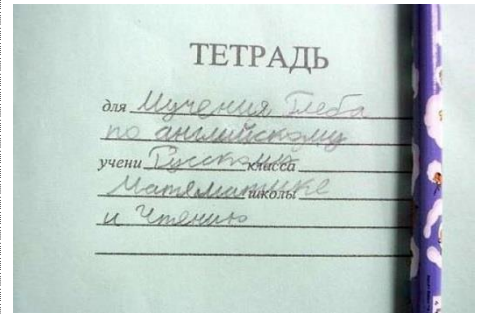 ТЕТРАДЬ
для Мучения Глеба
по английскому
учени Русскому класса
Матемматике школы
и Чтению